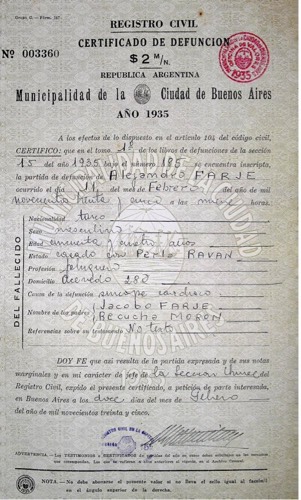 Grupo C. - Form. 127
REGISTRO CIVIL
CERTIFICADO DE DEFUNCION
Nº 003360
$ 2 M/N.
1935
REPUBLICA ARGENTINA
Municipalidad de la Ciudad de Buenos Aires
AÑO 1935
A los efectos de lo dispuesto en el artículo 104 del código civil,
CERTIFICO: que en el tomo 1º de los libros de defunciones de la sección
15 del año 1935 bajo el número 185 se encuentra inscripta,
la partida de defunción de Alejandro FARJE
ocurrido el día 11 del mes de Febrero del año de mil
novecientos treinta y cinco a las nueve horas.
DEL FALLECIDO
Nacionalidad turco
Sexo masculino
Edad cincuenta y cuatro años
Estado casado con Perla RAVAN
Profesión peluquero
Domicilio Acevedo 280
Causa de la defunción síncope cardíaco
Nombre de los padres Jacobo FARJE
Recucha MORON
Referencias sobre su testamento No testó
DOY FE que así resulta de la partida expresada y de sus notas
marginales y en mi carácter de jefe de la Sección Quince del
Registro Civil, expido el presente certificado, a petición de parte interesada,
en Buenos Aires a los doce días de Febrero
del año de mil novecientos treinta y cinco.
ADVERTENCIA. - Los TESTIMONIOS y CERTIFICADOS de partidas
NOTA. - No debe abonarse el presente valor si no lleva el sello igual al estampado
en el ángulo superior de la derecha.